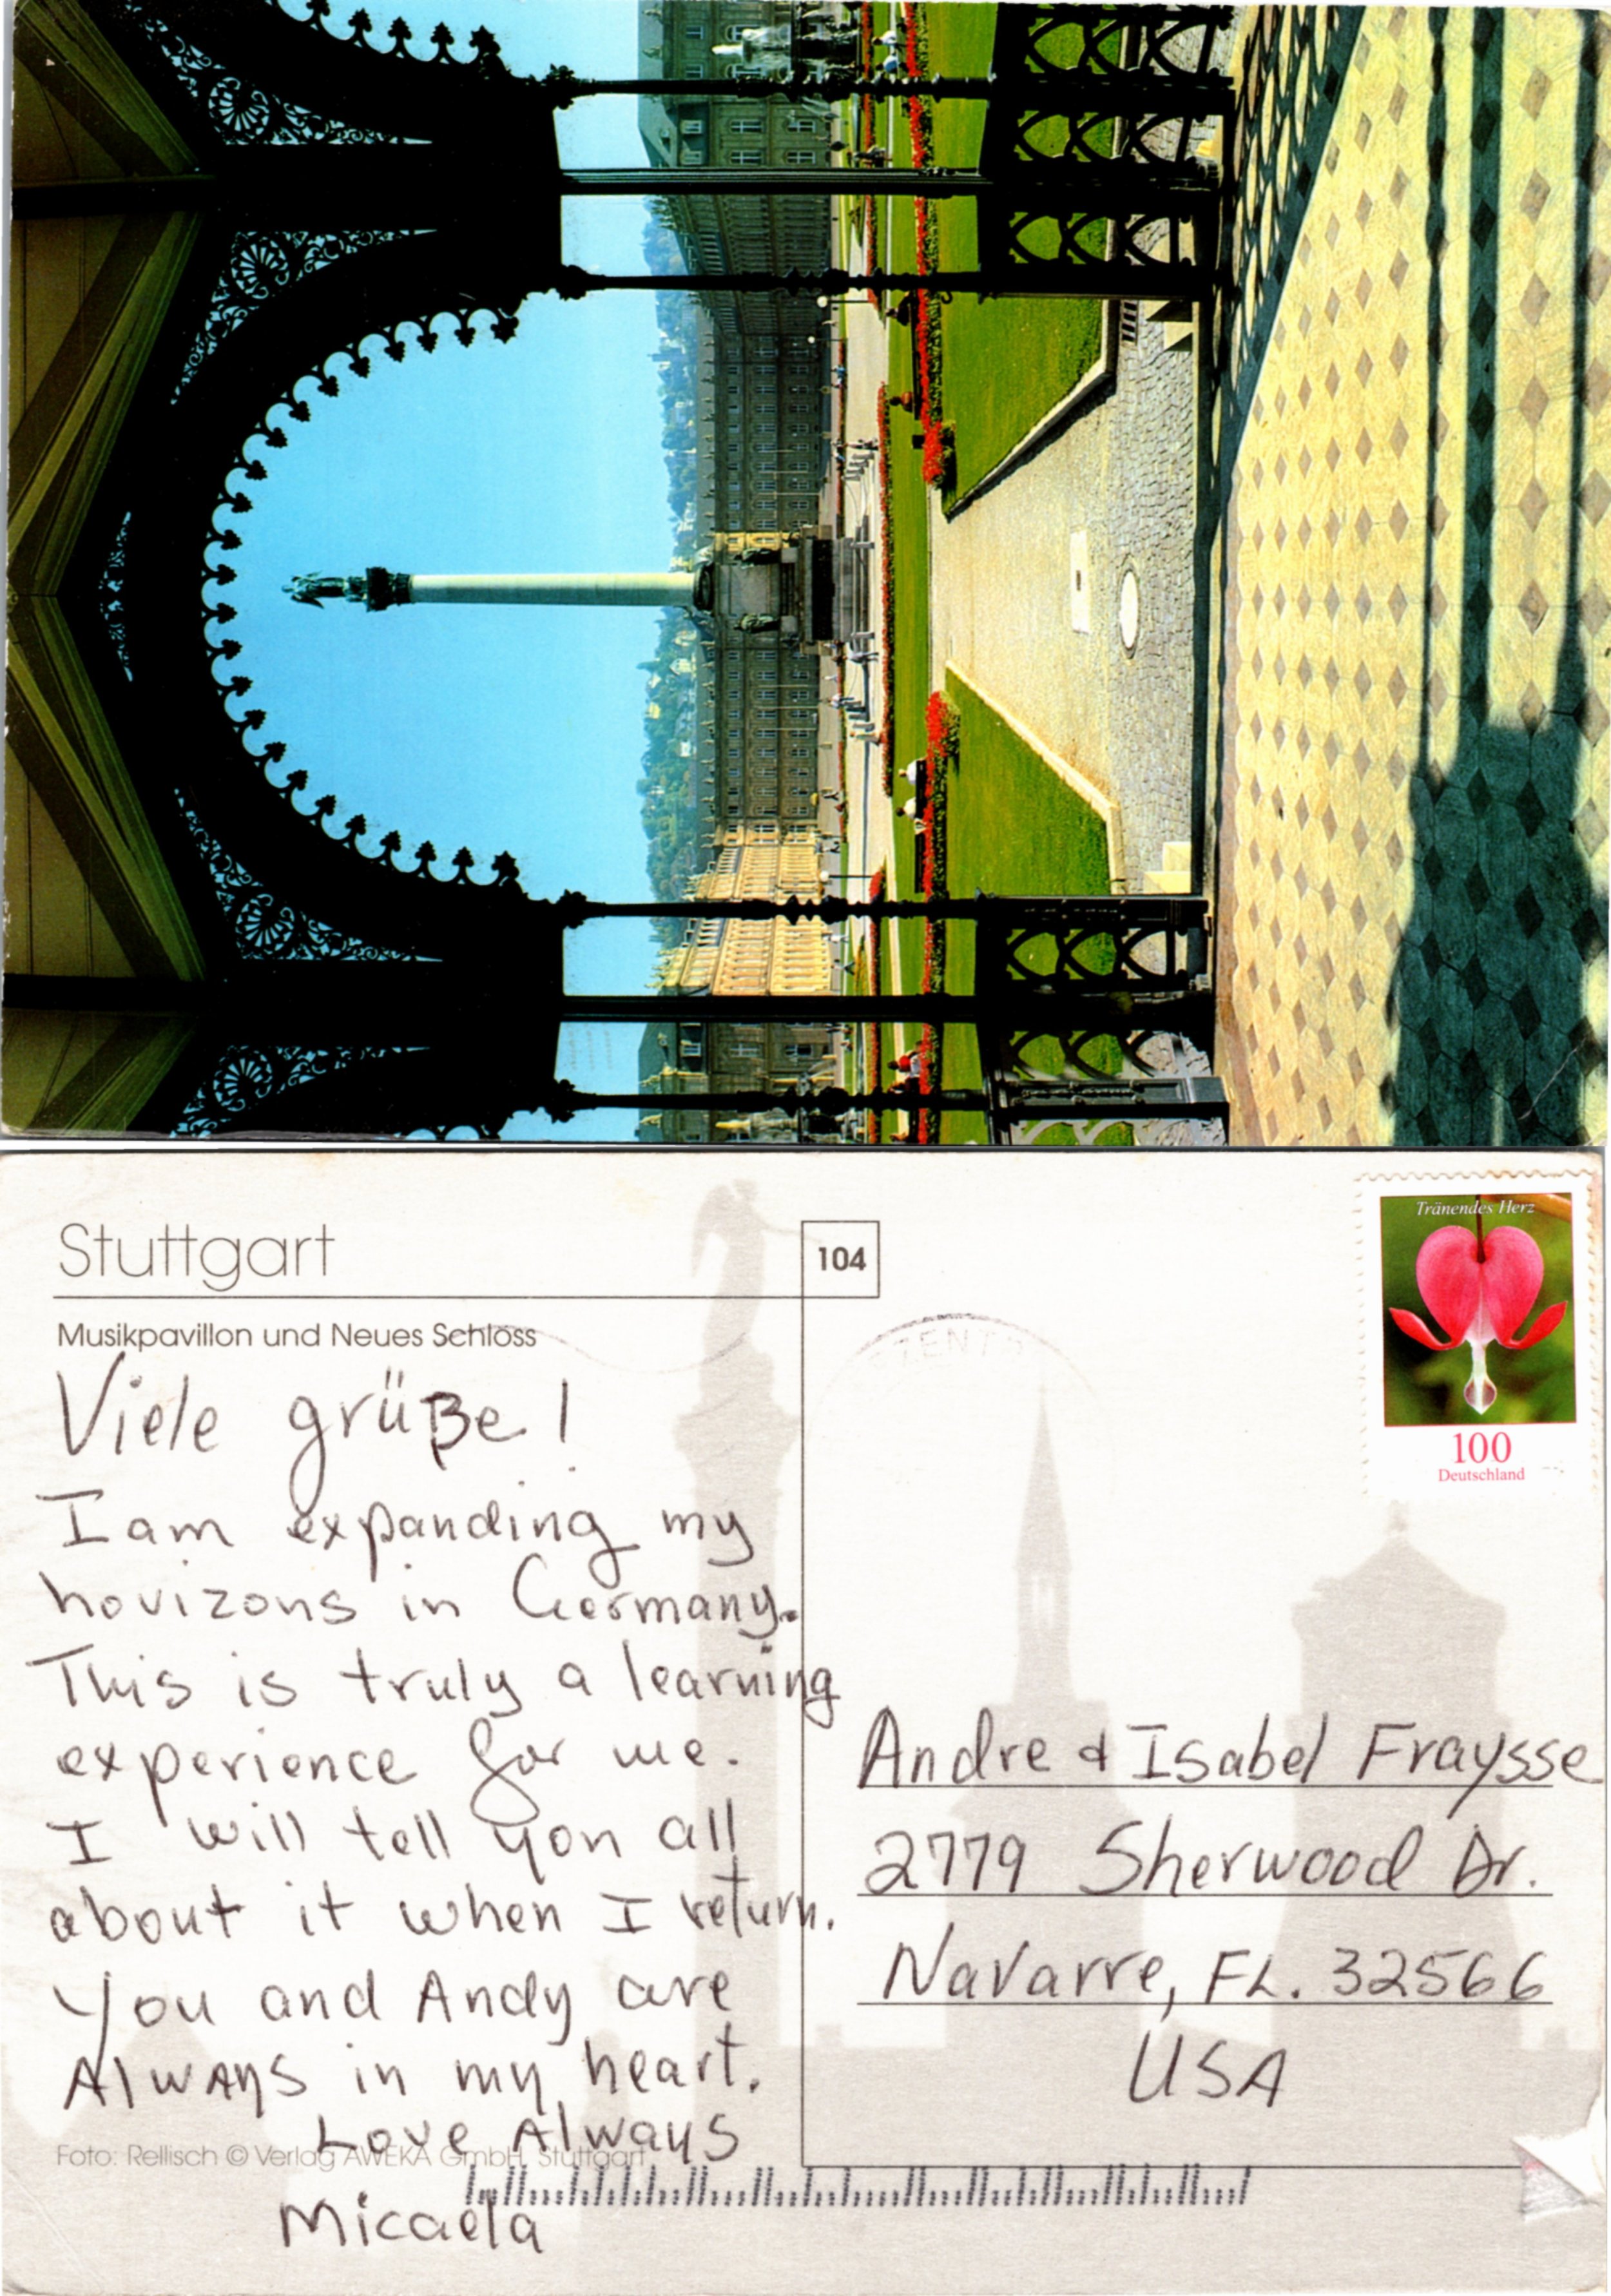 Stuttgart
104
Musikpavillon und Neues Schloss
Viele grüße!
I am expanding my
horizons in Germany.
This is truly a learning
experience for me.
I will tell you all
about it when I return.
You and Andy are
Always in my heart.
Love Always
Micaela
Foto: Rellisch © Verlag AWEKA GmbH, Stuttgart
Tränendes Herz
100
Deutschland
Andre & Isabel Fraysse
2779 Sherwood Dr.
Navarre, FL. 32566
USA